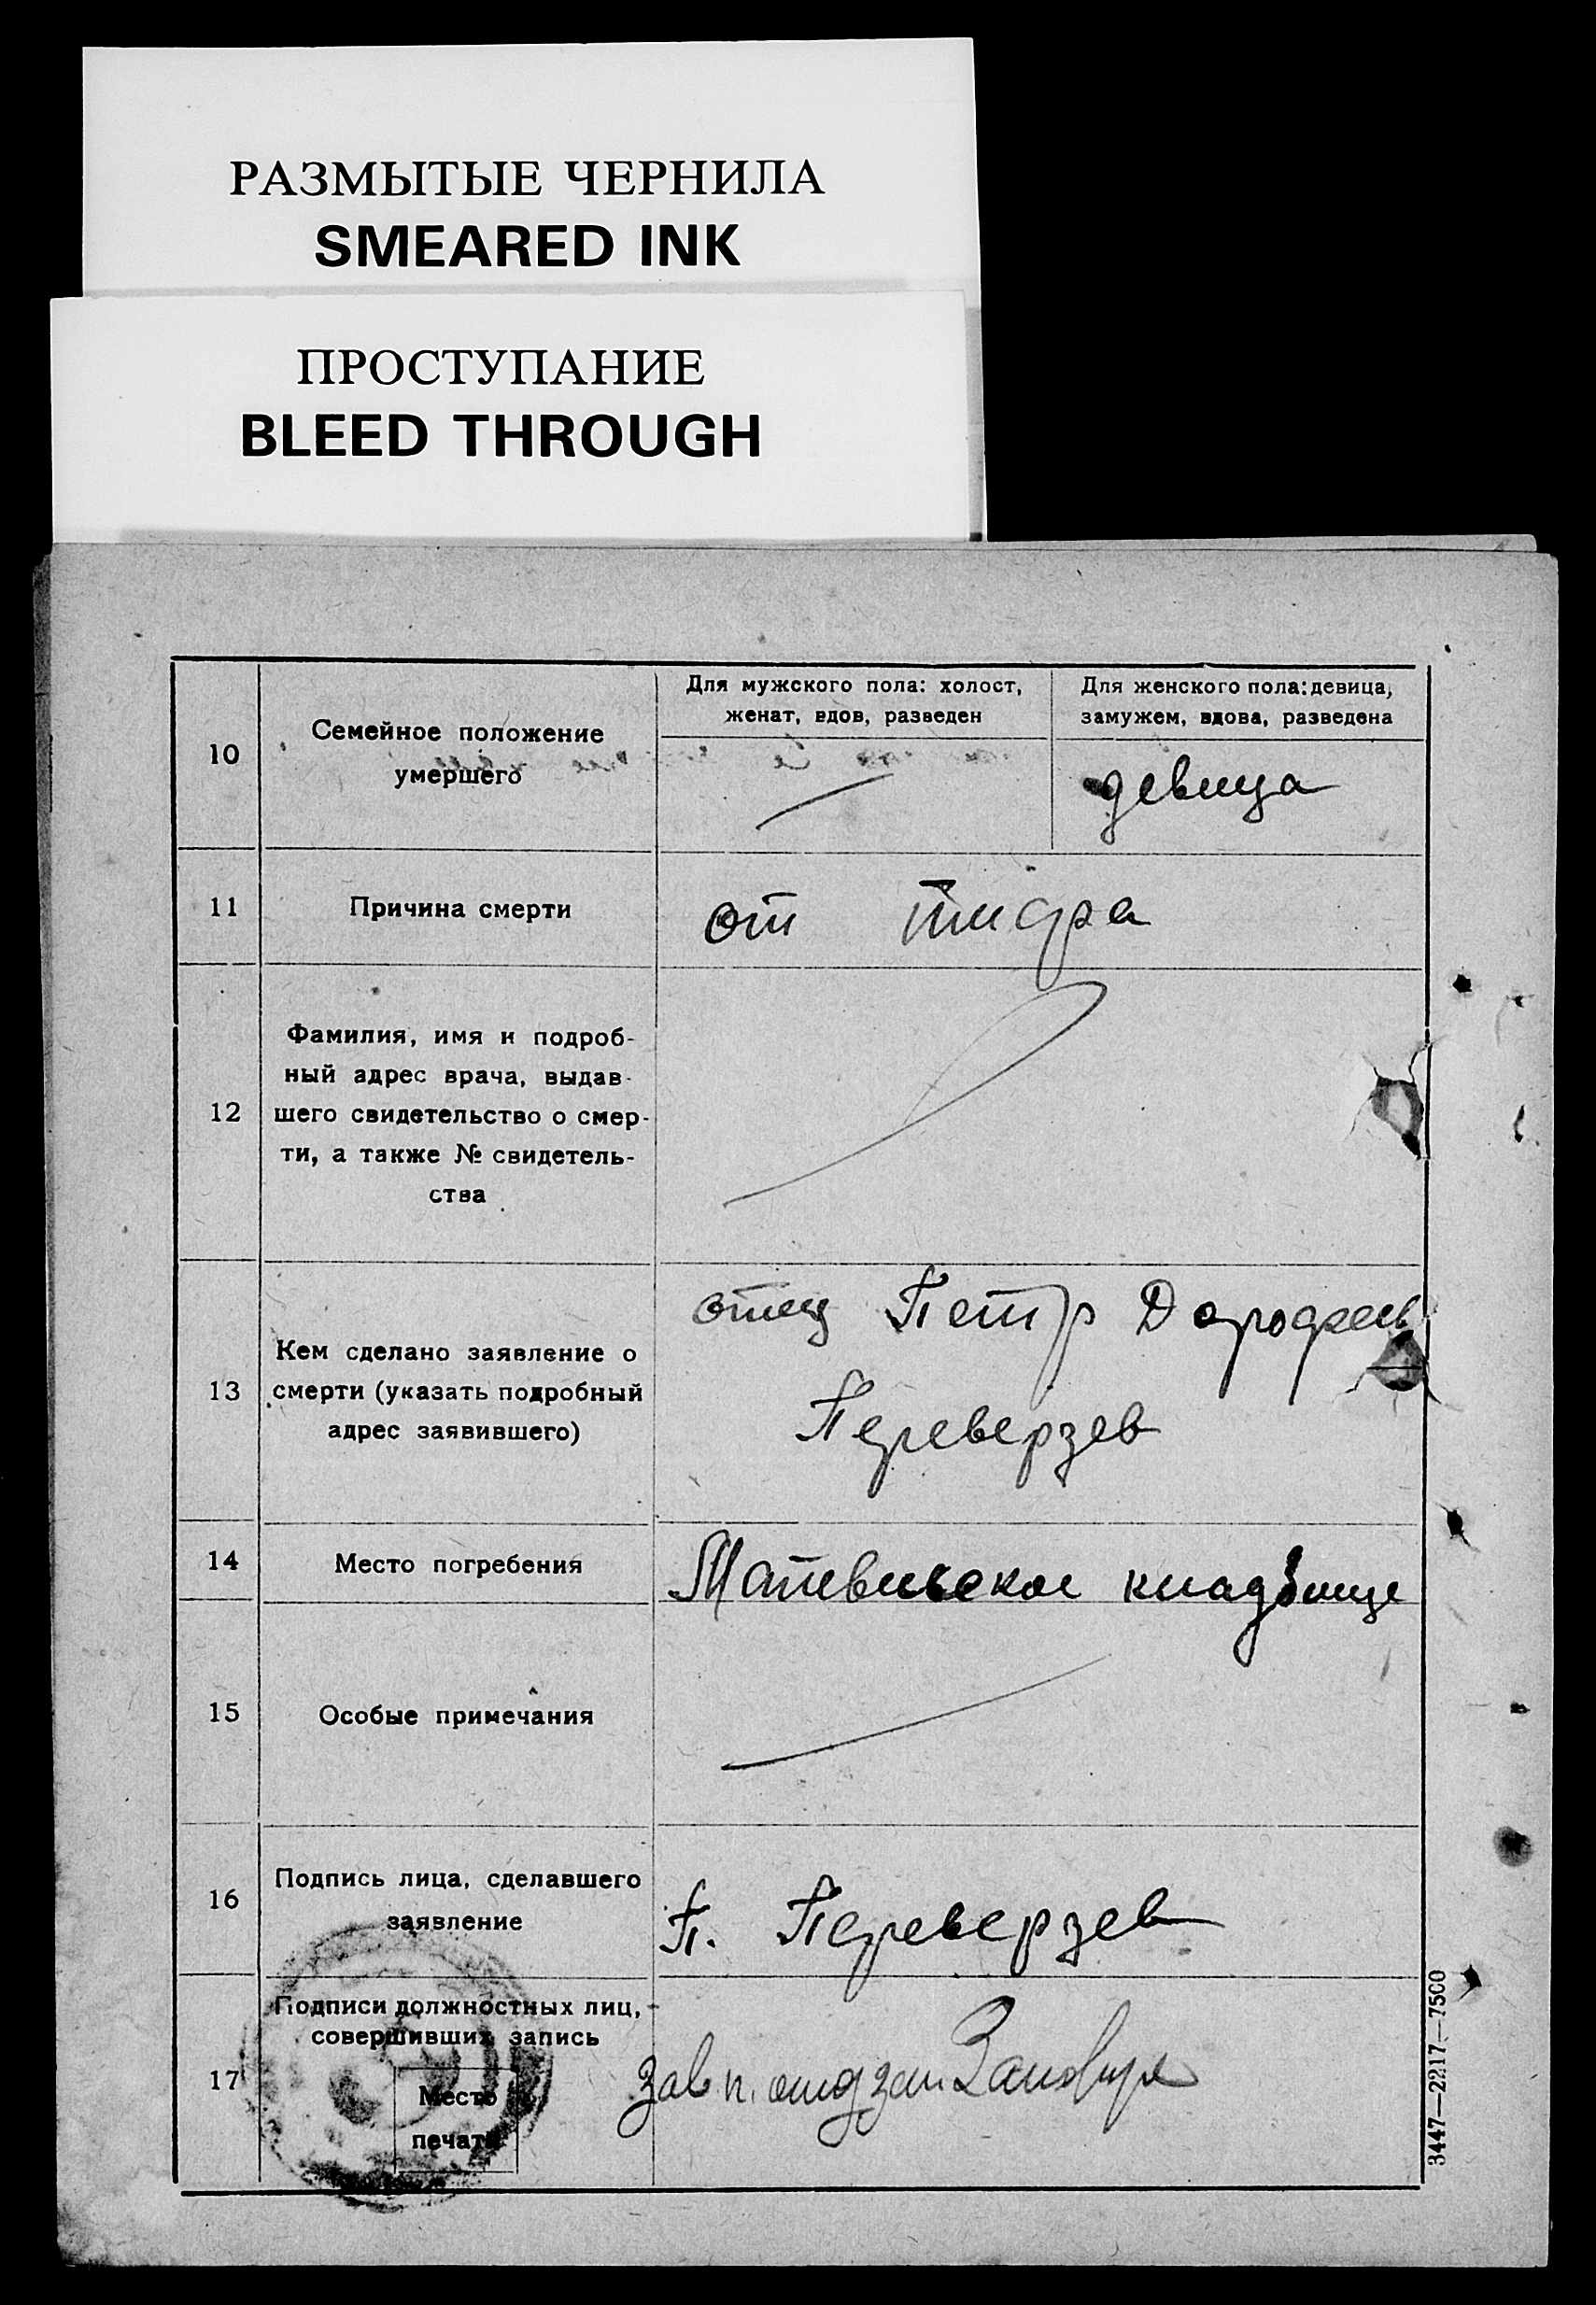 РАЗМЫТЫЕ ЧЕРНИЛА
SMEARED INK
ПРОСТУПАНИЕ
BLEED THROUGH
10
Семейное положение
умершего
Для мужского пола: холост,
женат, вдов, разведен
Для женского пола: девица,
замужем, вдова, разведена
девица
11
Причина смерти
от тифа
12
Фамилия, имя и подроб-
ный адрес врача, выдав-
шего свидетельство о смер-
ти, а также № свидетель-
ства
13
Кем сделано заявление о
смерти (указать подробный
адрес заявившего)
отец Петр
Переверзев
14
Место погребения
кладбище
15
Особые примечания
16
Подпись лица, сделавшего
заявление
П. Переверзев
17
Подписи должностных лиц,
совершивших запись
Место
печати
зав.
3447—2217—7500